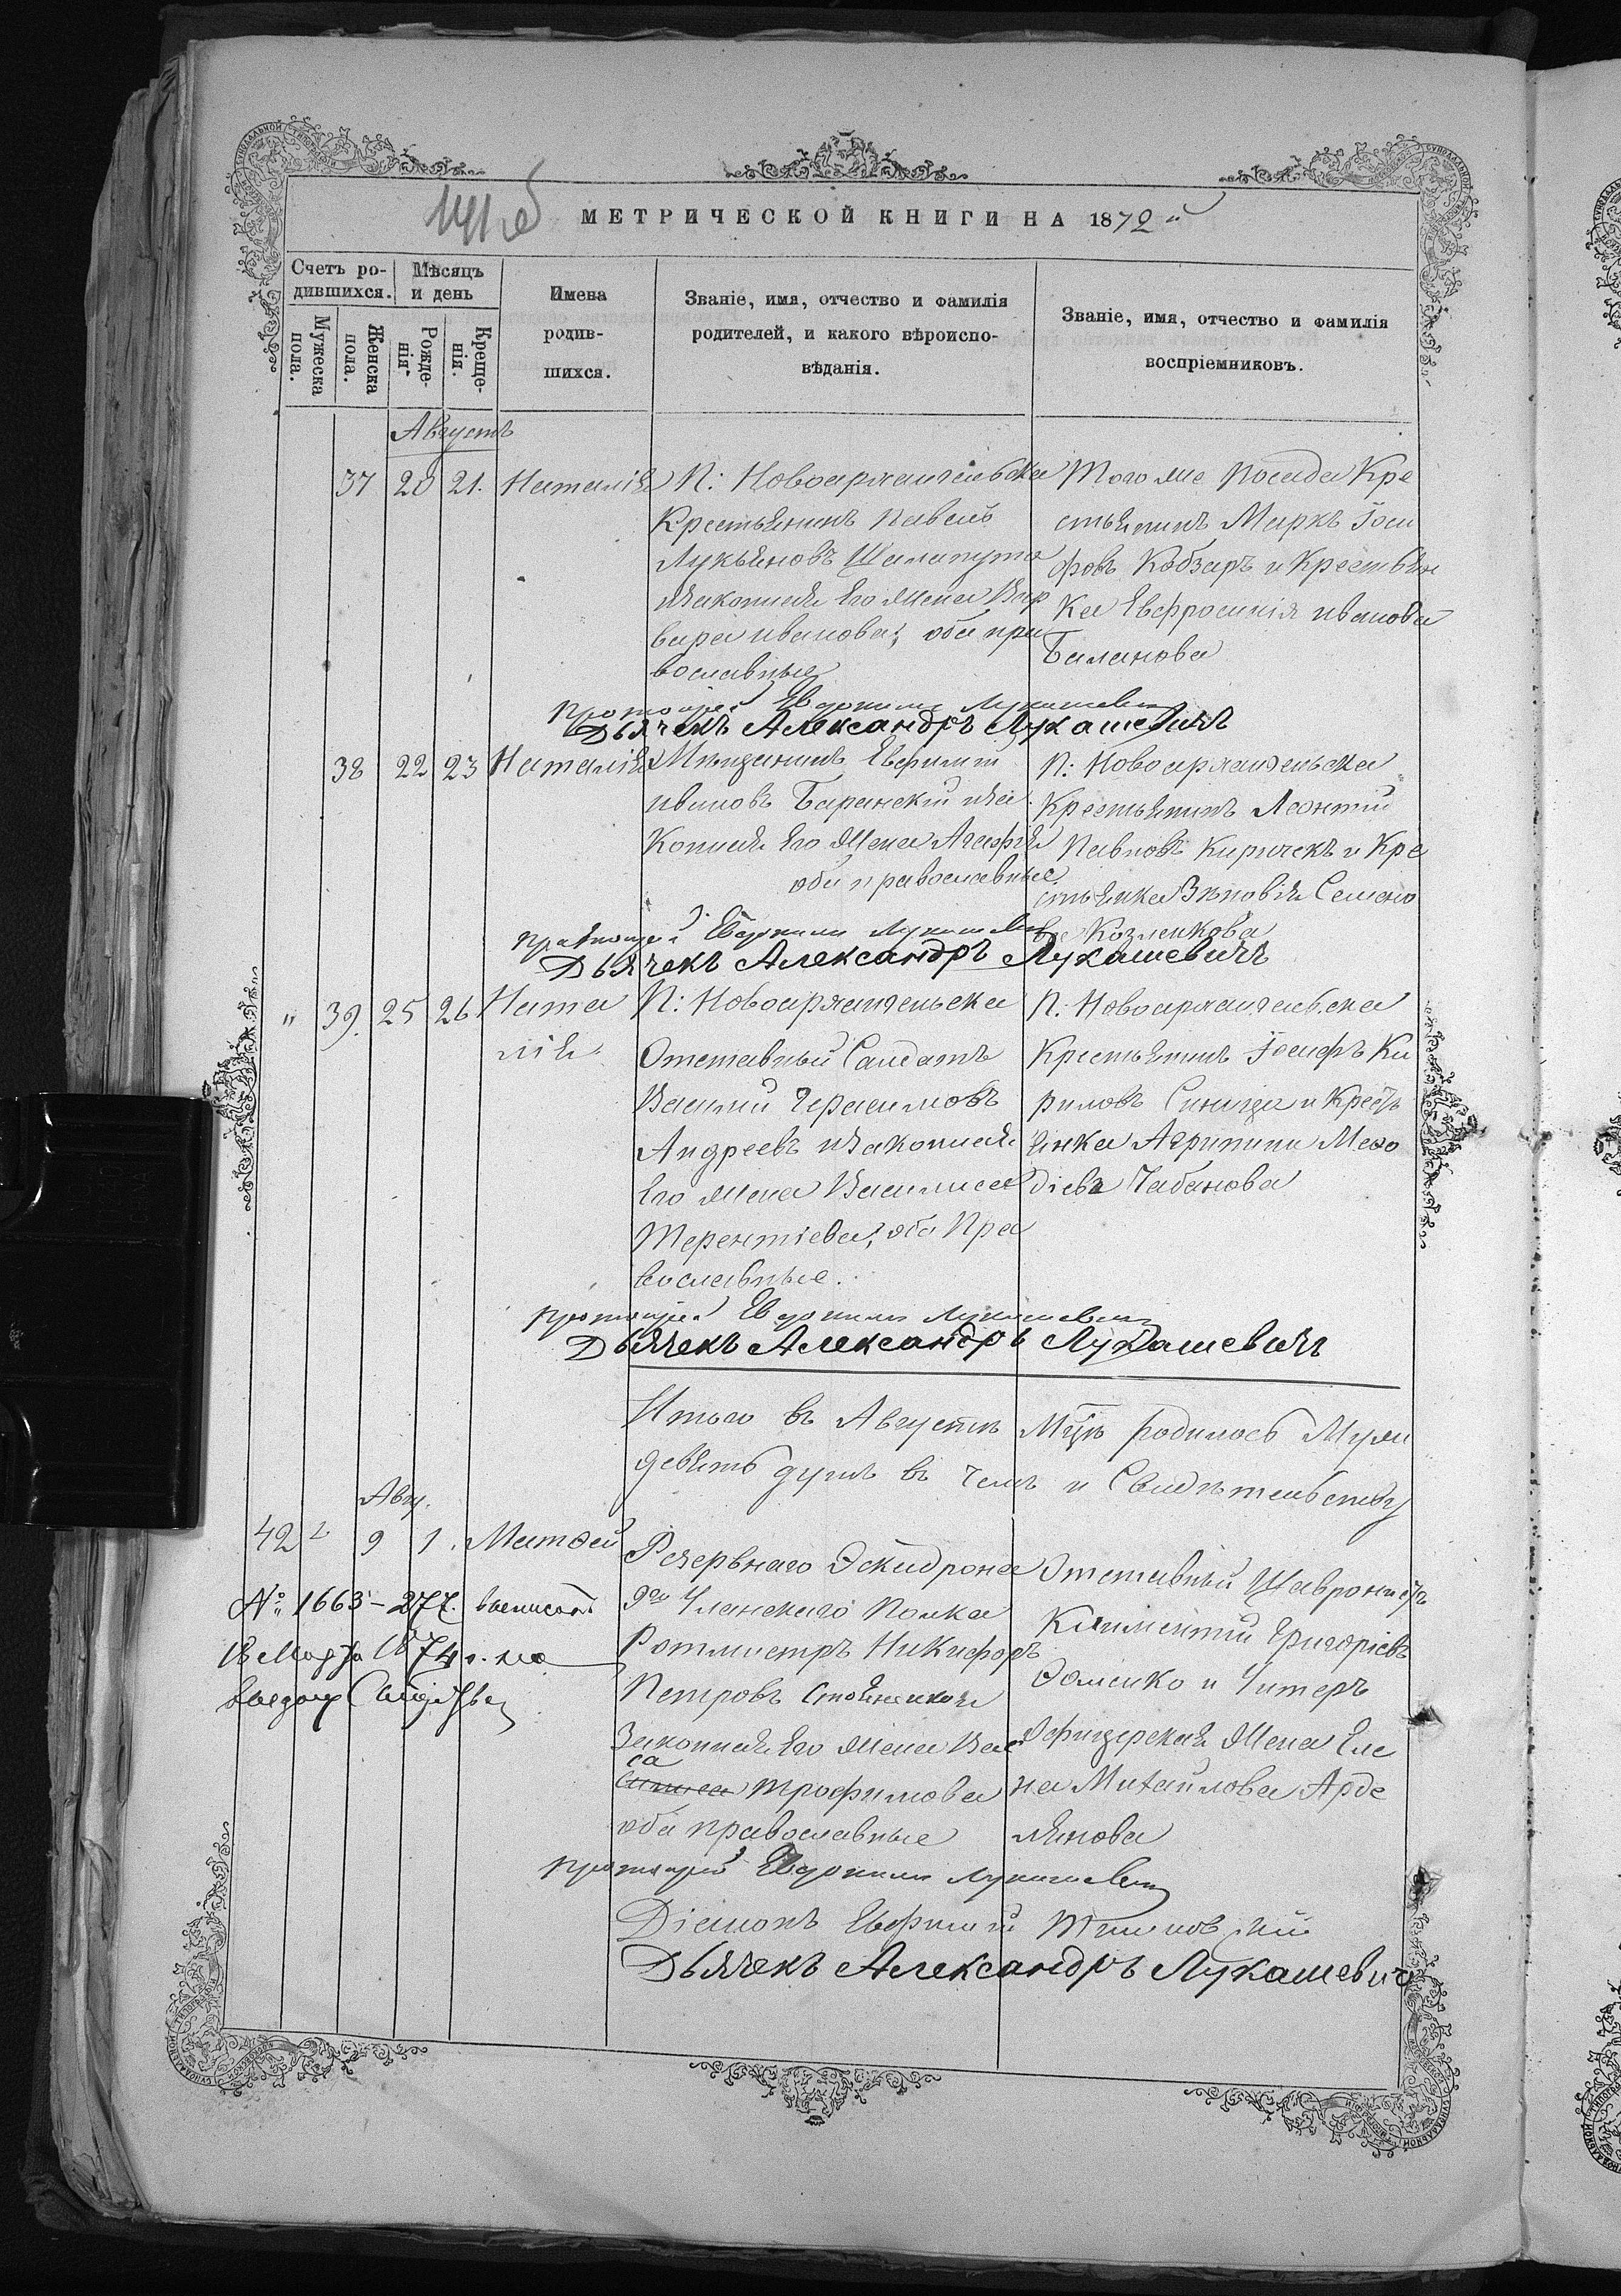 МЕТРИЧЕСКОЙ КНИГИ НА 1872й
Счетъ ро-
дившихся.
Мѣсяцъ
и день
Имена
родив-
шихся.
Званіе, имя, отчество и фамилія
родителей, и какого вѣроиспо-
вѣданія.
Званіе, имя, отчество и фамилія
воспріемниковъ.
Мужеска
пола.
Женска
пола.
Рожде-
нія.
Креще-
нія.
Августъ
37 20 21. Наталія
П: Новоархангельска
Крестьянинъ Павелъ
Лукьяновъ Шалапута
изаконная Его Жена Вар
вара Иванова, оба пра
вославные
Того же Посада Кре
стьянинъ Маркъ Іоси
фовъ Кобзаръ и Крестьян
ка Евфросинія Иванова
Баланова
Протоіерей Евдокимъ Лукашевичъ
Дьячекъ Александръ Лукашевичъ
38 22 23 Наталія
Мѣщанинъ Евфимій
Ивановъ Баранскій иза
конная Его Жена Агафія
оба православные
П: Новоархангельска
Крестьянинъ Леонтій
Павловъ Киричекъ и Кре
стьянка Зѣновія Семено
ва Козленкова
Протоіерей Евдокимъ Лукашевичъ
Дьячекъ Александръ Лукашевичъ
" 39. 25 26 Ната
лія
П: Новоархангельска
Отставный Салдатъ
Василій Герасимовъ
Андреевъ изаконная
Его Жена Василиса
Терентіева, оба Пра
вославные.
П. Новоархангельска
Крестьянинъ Іосифъ Ки
риловъ Синица и Кресть
янка Агрипина Меѳо
діева Чабанова
Протоіерей Евдокимъ Лукашевичъ
Дьячекъ Александръ Лукашевичъ
Итого въ Августѣ Мцѣ родилось Муж
девять душъ въ чемъ и Свидѣтельству
Авгу.
42 9 1. Матѳей
№ 1663 - 277.
18 Марта 1874 г.
Резервнаго Эскадрона
9го Уланскаго Полка
Ротмистръ Никифоръ
Петровъ
Законная Его Жена Вас
са
Трофимова
оба православные
Отставный
Климентій Григоріевъ
Ѳоменко и Унтеръ
Офицерская Жена Еле
на Михайлова Арде
лянова
Протоіерей Евдокимъ Лукашевичъ
Діаконъ Евфимій
Дьячекъ Александръ Лукашевичъ